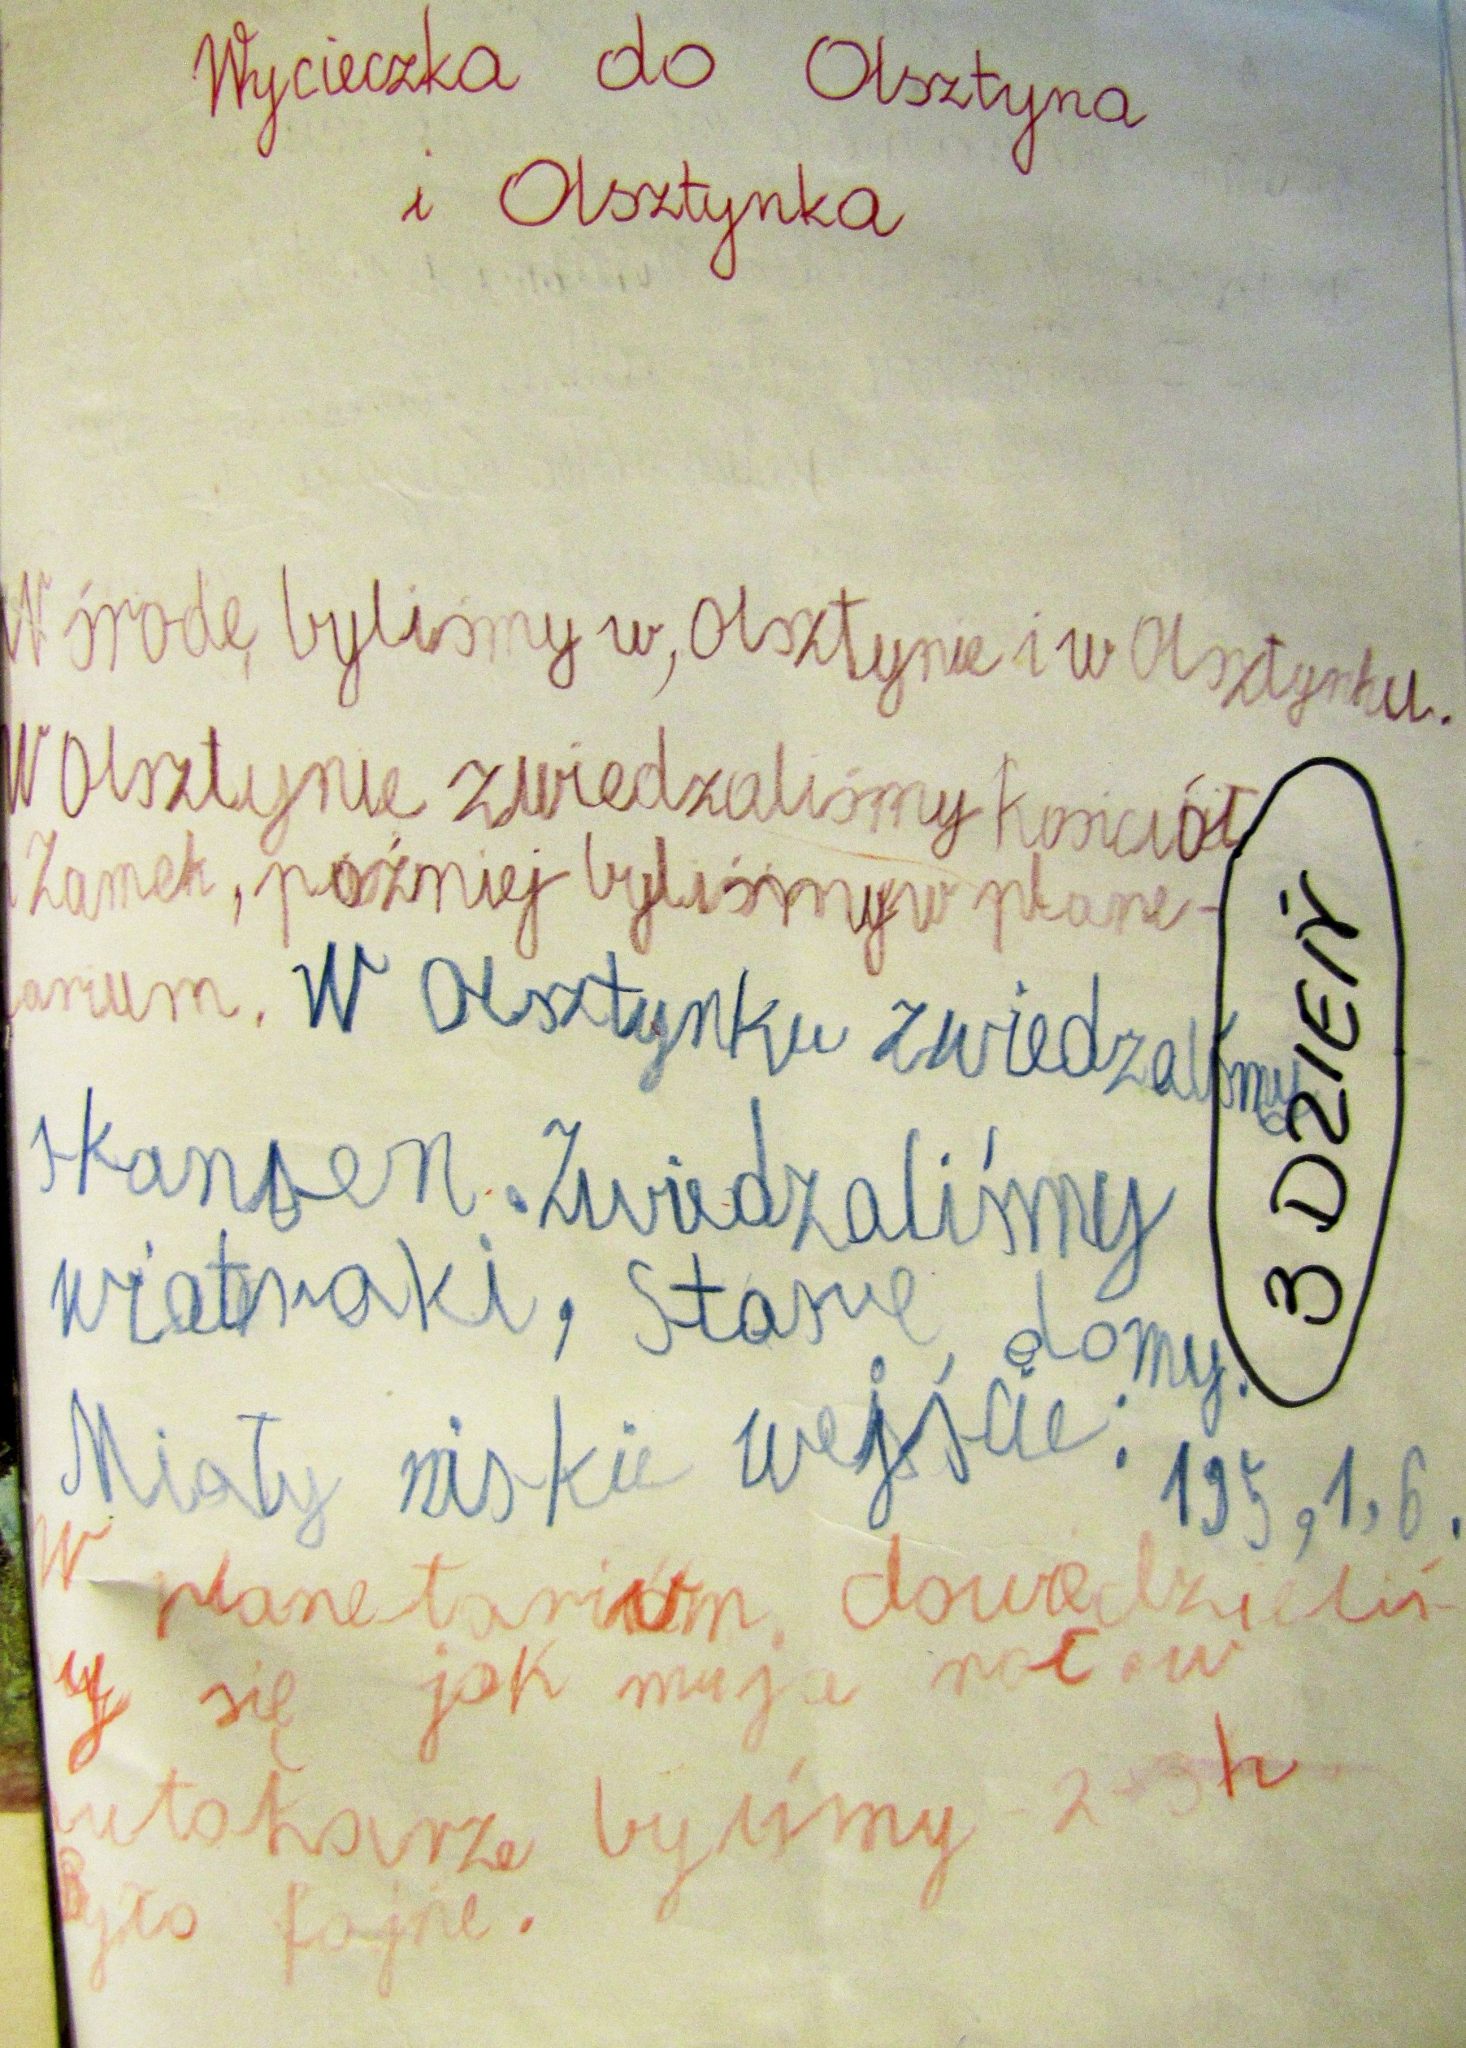 Wycieczka do Olsztyna
i Olsztynka
W środę, byliśmy w, Olsztynie i w Olsztynku.
W Olsztynie zwiedzaliśmy kościół
i Zamek, później byliśmy w plane-
tarium. W Olsztynku zwiedzaliśmy
skansen. Zwiedzaliśmy
wiatraki, Stare domy.
Miały niskie wejście: 195, 1,6.
W planetarium, dowiedzieliś-
my się jak
autokarze byliśmy - 2-3h
Było fajne.
3 DZIEŃ